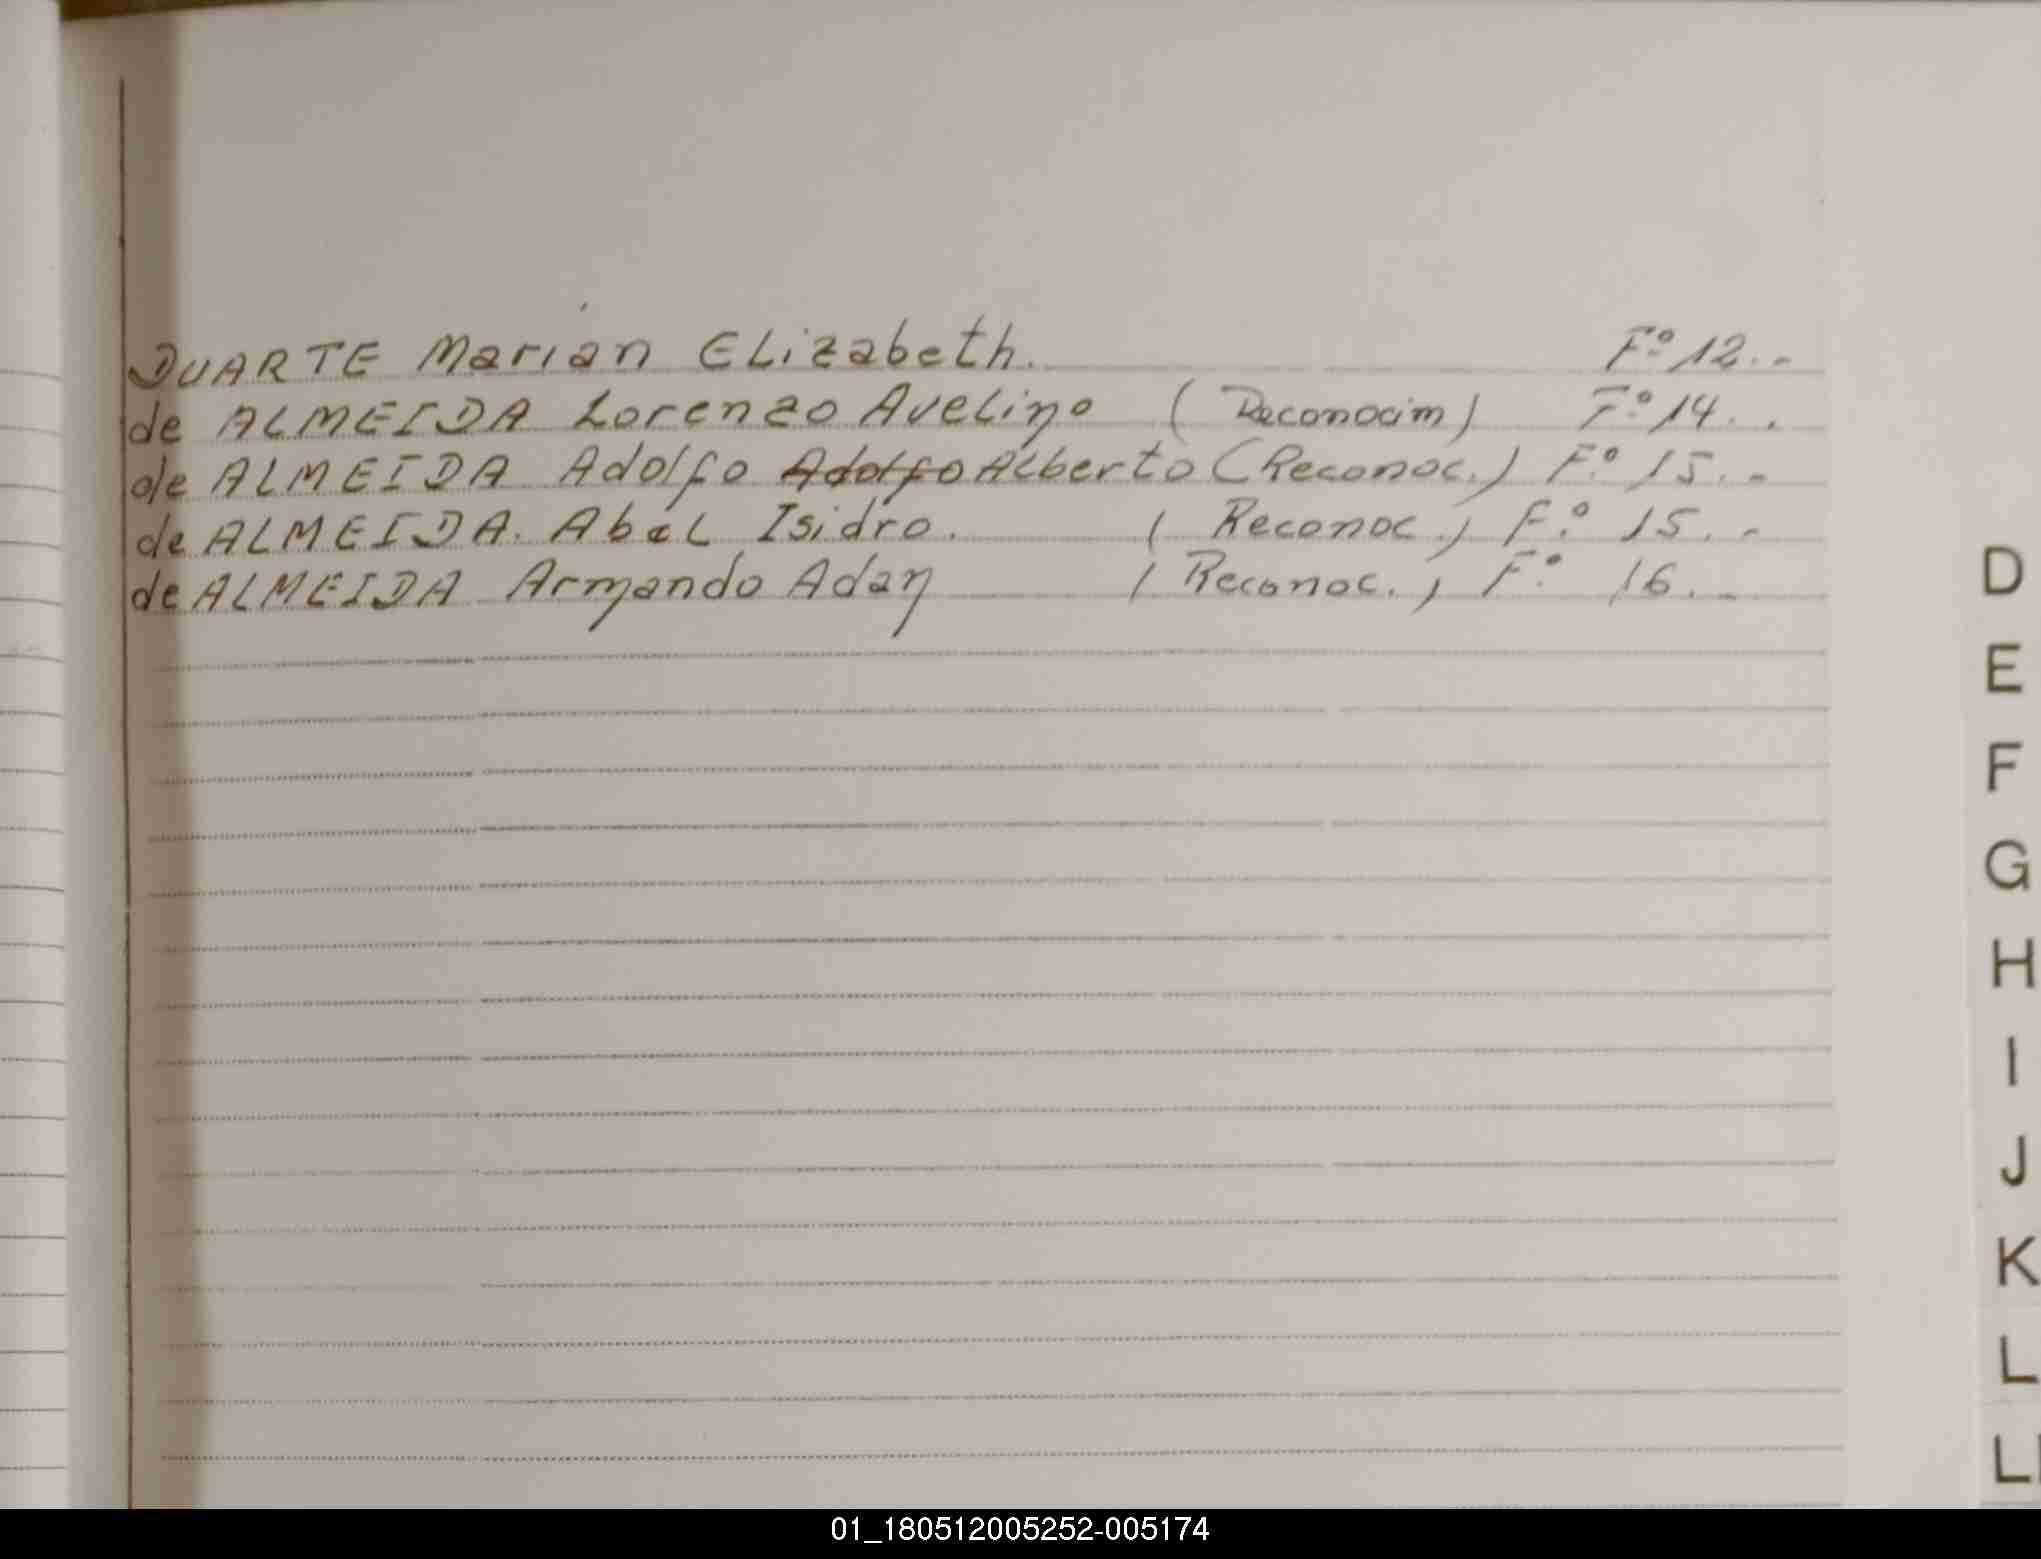 DUARTE Marian ELizabeth. Fº 12..-
de ALMEIDA Lorenzo Avelino (Reconocim) Fº 14. .
de ALMEIDA Adolfo Adolfo Alberto (Reconoc.) Fº 15.-
de ALMEIDA. Abel Isidro. (Reconoc.) Fº 15.-
de ALMEIDA Armando Adan (Reconoc.) Fº 16.-
D
E
F
G
H
I
J
K
L
LL
01_180512005252-005174